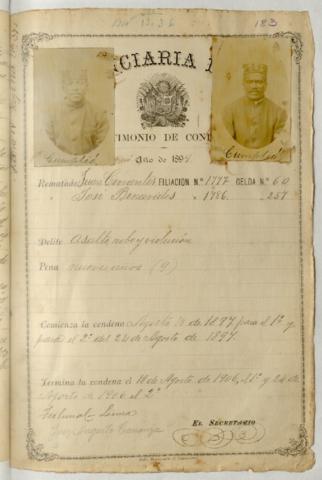 183
NCIARIA
TIMONIO DE CON
Año de 189
Cumplió
Cumplió
Rematado Juan Cervantes FILIACIÓN N.º 1777 CELDA N.º 60
" José Benavides " 1786 " 257
Delito Asalto robo y violación
Pena nueve años (9)
Comienza la condena Agosto 18 de 1897 para el 1º y
para el 2º del 24 de Agosto de 1897.
Termina la condena el 18 de Agosto de 1906, el 1º y 24 de
Agosto de 1906 el 2º
Tribunal Lima
Augusto
EL SECRETARIO